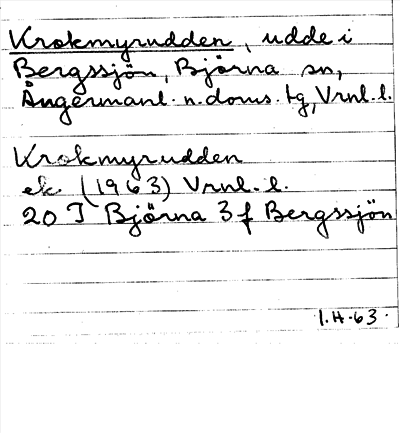 Krokmyrudden, udde i
Bergssjön, Björna sn,
Ångermanl. n. doms. tg, Vrnl. l.
Krokmyrudden
ek. (1963) Vrnl. l.
20 I Björna 3 f Bergssjön
I.H.63.